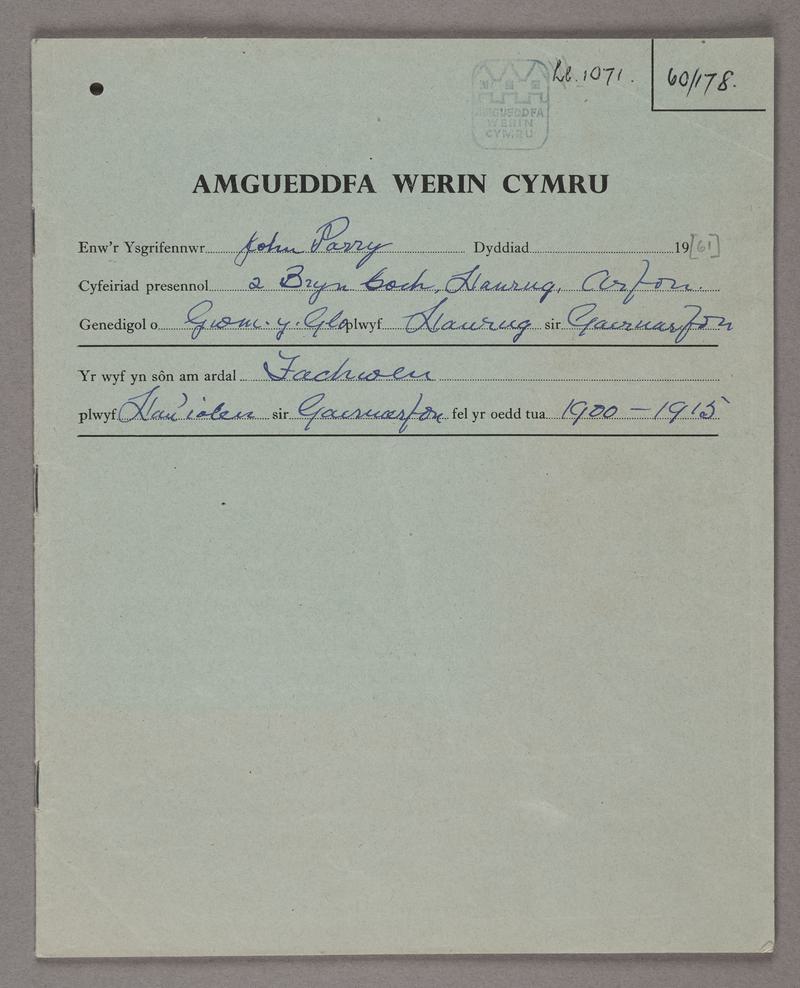 Ll. 1071. 60/178.
AMGUEDDFA
WERIN
CYMRU
AMGUEDDFA WERIN CYMRU
Enw'r Ysgrifennwr John Parry Dyddiad 19[61]
Cyfeiriad presennol 2 Bryn Coch, Llanrug, Arfon.
Genedigol o Cwm. y. Glo plwyf Llanrug sir Gaernarfon
Yr wyf yn sôn am ardal Fachwen
plwyf Llan'iolen sir Gaernarfon fel yr oedd tua 1900 – 1915